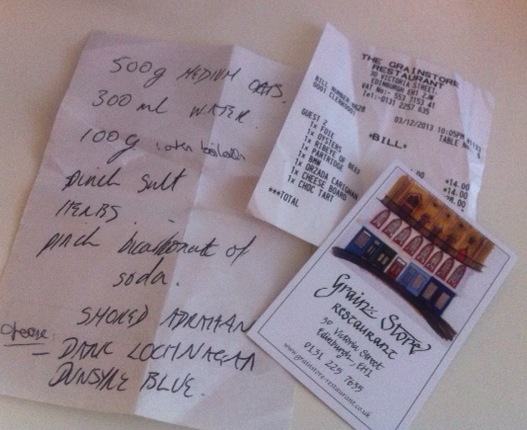 500g MEDIUM OATS.
300ml WATER.
100g
pinch salt
HERBS . . .
pinch bicarbonate of
soda.
SMOKED
cheese
DARK LOCHNAGAR
DUNSYRE BLUE.
THE GRAINSTORE
RESTAURANT
30 VICTORIA STREET
EDINBURGH EH1 2JW
VAT No:- 553 7153 41
Tel:-0131 2257 635
BILL NUMBER
0001
03/12/2013 10:05PM
TABLE
*BILL*
GUEST 2
1x FOIE
1x OYSTERS
1x RIBEYE OF BEEF
1x PARTRIDGE
1x BMW
1x ORZADA CARIGNAN
1x CHEESE BOARD
1x CHOC TART
***TOTAL
*14.00
*14.00
Grain Store
RESTAURANT
30 Victoria Street
Edinburgh, EH1
0131 225 7635
www.grainstore-restaurant.co.uk